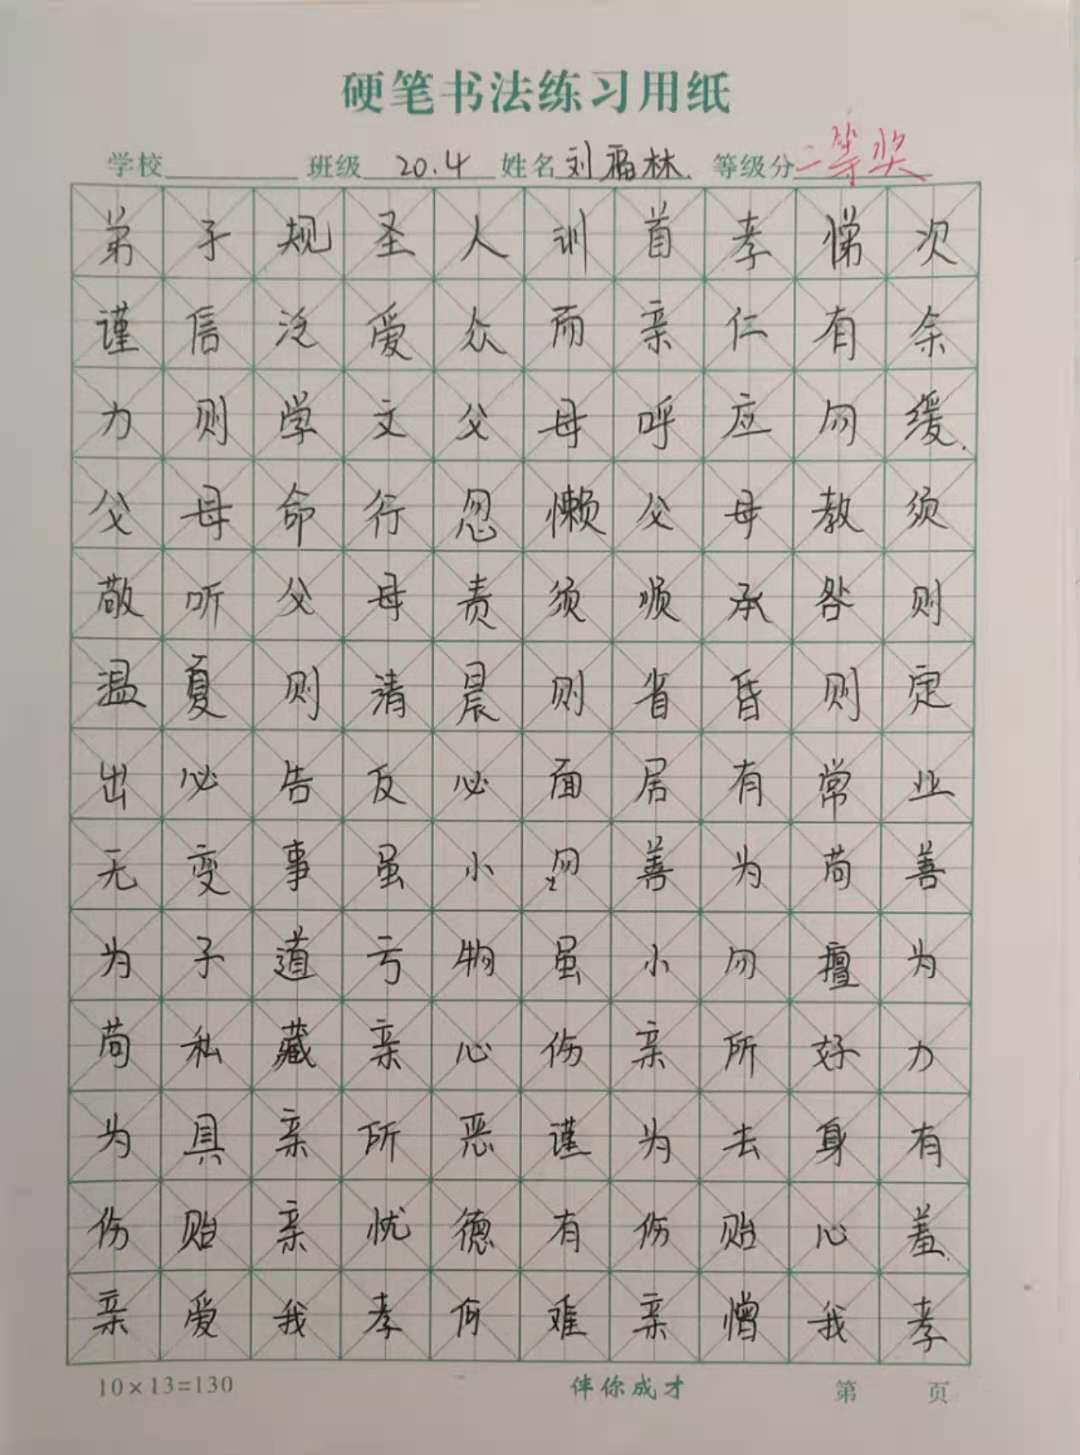 硬笔书法练习用纸
学校 班级 20.4 姓名 刘福林. 等级分 二等奖
弟子规圣人训首孝悌次
谨信泛爱众而亲仁有余
力则学文父母呼应勿缓.
父母命行忽懒父母教须
敬听父母责须顺承咎则
温夏则清晨则省昏则定
出必告反必面居有常业
无变事虽小勿善为苟善
为子道亏物虽小勿擅为
苟私藏亲心伤亲所好力
为具亲所恶谨为去身有
伤贻亲忧德有伤贻心羞.
亲爱我孝何难亲憎我孝
10×13=130 伴你成才 第 页